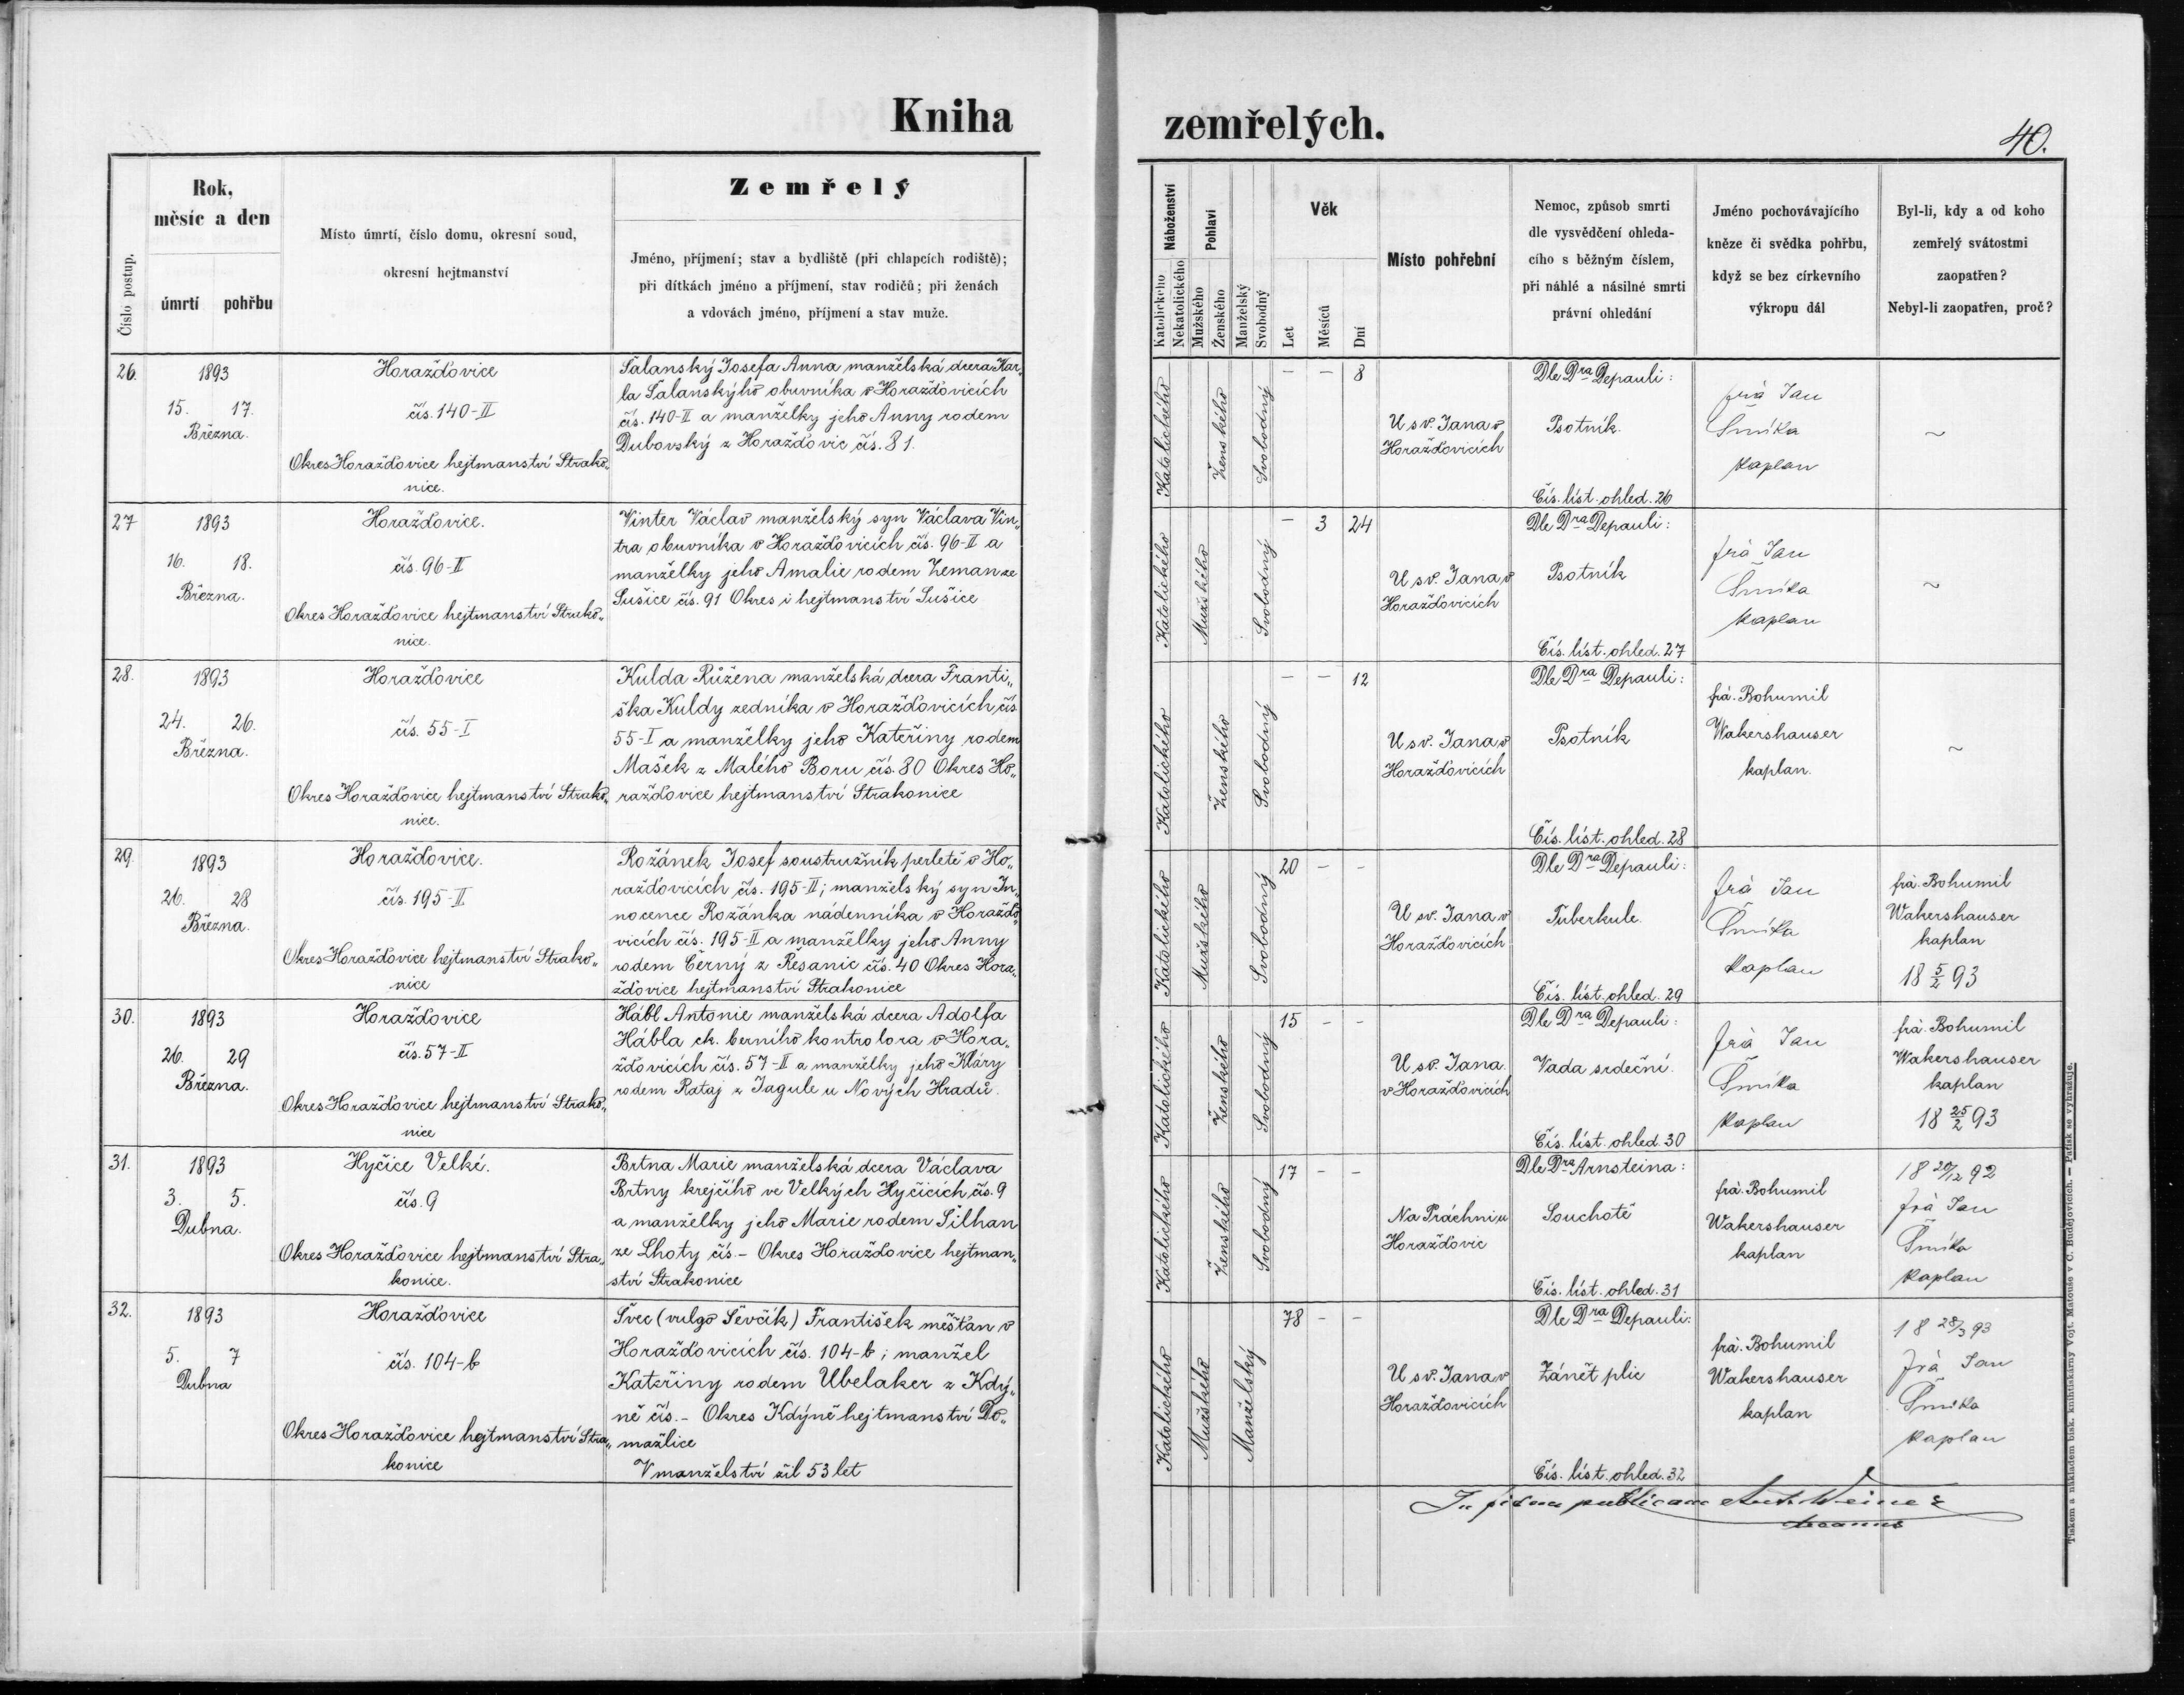 Kniha
zemřelých.
40.
Číslo postup.
Rok,
měsíc a den
úmrtí pohřbu
Místo úmrtí, číslo domu, okresní soud,
okresní hejtmanství
Zemřelý
Jméno, příjmení; stav a bydliště (při chlapcích rodiště);
při dítkách jméno a příjmení, stav rodičů; při ženách
a vdovách jméno, příjmení a stav muže.
Náboženství
Katolického
Nekatolického
Pohlaví
Mužského
Ženského
Manželský
Svobodný
Věk
Let
Měsíců
Dní
Místo pohřební
Nemoc, způsob smrti
dle vysvědčení ohleda-
cího s běžným číslem,
při náhlé a násilné smrti
právní ohledání
Jméno pochovávajícího
kněze či svědka pohřbu,
když se bez církevního
výkropu dál
Byl-li, kdy a od koho
zemřelý svátostmi
zaopatřen?
Nebyl-li zaopatřen, proč?
26.
1893
15. 17.
Března.
Horažďovice
čís. 140-II
Okres Horažďovice hejtmanství Strako„
nice.
Šalanský Josefa Anna manželská dcera Kar„
la Šalanskýho obuvníka v Horažďovicích
čís. 140-II a manželky jeho Anny rodem
Dubovský z Horažďovic čís. 81.
Katolického
Ženského
Svobodný
- - 8
U sv. Jana v
Horažďovicích
Dle Dra Depauli:
Psotník.
Čís. líst. ohled. 26
frà Jan
Šmíka
kaplan
~
27
1893
16. 18.
Března.
Horažďovice.
čís. 96-II
Okres Horažďovice hejtmanství Strako„
nice.
Vinter Václav manželský syn Václava Vin„
tra obuvníka v Horažďovicích čís. 96-II a
manželky jeho Amalie rodem Zeman ze
Sušice čís. 91 Okres i hejtmanství Sušice
Katolického
Mužského
Svobodný
- 3 24
U sv. Jana v
Horažďovicích
Dle Dra Depauli:
Psotník
Čís. líst. ohled. 27
frà Jan
Šmíka
kaplan
~
28.
1893
24. 26.
Března.
Horažďovice
čís. 55-I
Okres Horažďovice hejtmanství Strako„
nice.
Kulda Růžena manželská dcera Franti„
ška Kuldy zedníka v Horažďovicích čís.
55-I a manželky jeho Kateřiny rodem
Mašek z Malého Boru čís. 80 Okres Ho„
ražďovice hejtmanství Strakonice
Katolického
Ženského
Svobodný
- - 12
U sv. Jana v
Horažďovicích
Dle Dra Depauli:
Psotník
Čís. líst. ohled. 28
frà. Bohumil
Wakershauser
kaplan.
~
29.
1893
26. 28
Března.
Horažďovice.
čís. 195-II
Okres Horažďovice hejtmanství Strako„
nice
Rožánek Josef soustružník perletě v Ho„
ražďovicích čís. 195-II; manželský syn In„
nocence Rožánka nádenníka v Horaždo„
vicích čís. 195-II a manželky jeho Anny
rodem Černý z Řesanic čís. 40 Okres Hora„
žďovice hejtmanství Strakonice
Katolického
Mužského
Svobodný
20 - -
U sv. Jana v
Horažďovicích
Dle Dra Depauli:
Tuberkule.
Čís. líst. ohled. 29
frà Jan
Šmíka
kaplan
frà. Bohumil
Wakershauser
kaplan
18 5/2 93
30.
1893
26. 29
Března.
Horažďovice
čís. 57-II
Okres Horažďovice hejtmanství Strako„
nice
Hábl Antonie manželská dcera Adolfa
Hábla ck. berního kontrolora v Hora„
žďovicích čís. 57-II a manželky jeho Kláry
rodem Rataj z Jagule u Nových Hradů.
Katolického
Ženského
Svobodný
15 - -
U sv. Jana
v Horažďovicích
Dle Dra Depauli:
Vada srdeční.
Čís. líst. ohled. 30
frà Jan
Šmíka
kaplan
frà. Bohumil
Wakershauser
kaplan
18 25/2 93
31.
1893
3. 5.
Dubna.
Hyčice Velké.
čís. 9
Okres Horažďovice hejtmanství Stra„
konice.
Brtna Marie manželská dcera Václava
Brtny krejčího ve Velkých Hyčicích čís. 9
a manželky jeho Marie rodem Šilhan
ze Lhoty čís. - Okres Horažďovice hejtman„
ství Strakonice
Katolického
Ženského
Svobodný
17 - -
Na Práchni u
Horažďovic
Dle Dra Arnsteina:
Souchotě
Čís. líst. ohled. 31
frà. Bohumil
Wakershauser
kaplan
18 20/12 92
frà Jan
Šmíka
kaplan
32.
1893
5. 7
Dubna
Horažďovice
čís. 104-b
Okres Horažďovice hejtmanství Stra„
konice
Švec (vulgo Ševčík) František měšťan v
Horažďovicích čís. 104-b; manžel
Kateřiny rodem Ubelaker z Kdý„
ně čís. - Okres Kdýně hejtmanství Do„
mažlice
V manželství žil 53 let
Katolického
Mužského
Manželský
78 - -
U sv. Jana v
Horažďovicích
Dle Dra Depauli:
Zánět plic
Čís. líst. ohled. 32
frà. Bohumil
Wakershauser
kaplan
18 28/3 93
frà Jan
Šmíka
kaplan
In fidem publicam Ant. Weiner
decanus
Tiskem a nákladem bisk. knihtiskárny Vojt. Matouše v Č. Budějovicích. — Patisk se vyhražuje.